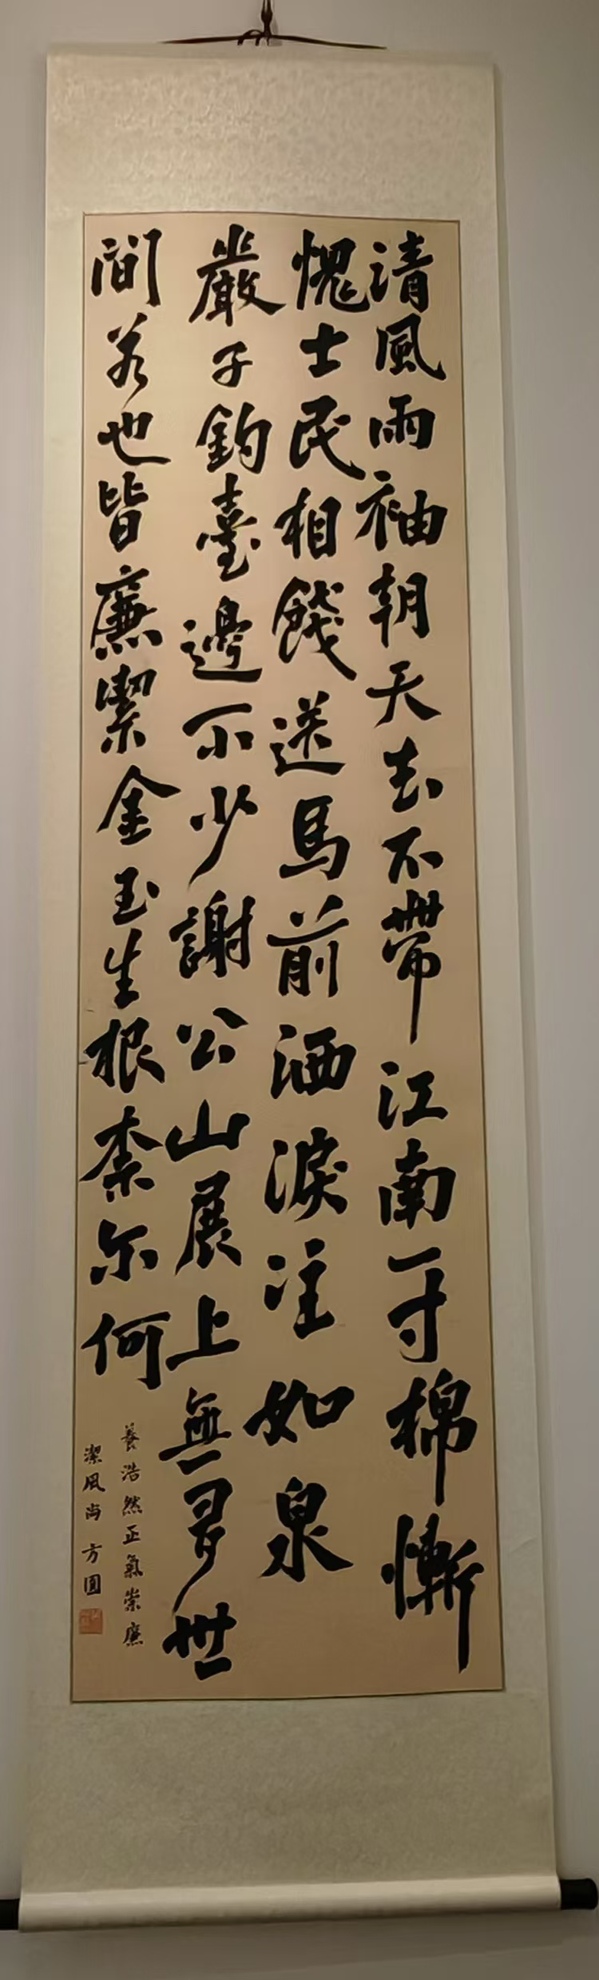 清風雨袖朝天去不帶江南一寸棉慚
愧士民相餞送馬前洒淚注如泉
嚴子釣臺邊不少謝公山展上無多世
間若也皆廉潔金玉生根柰尔何
養浩然正氣崇廉
潔風尚方圓